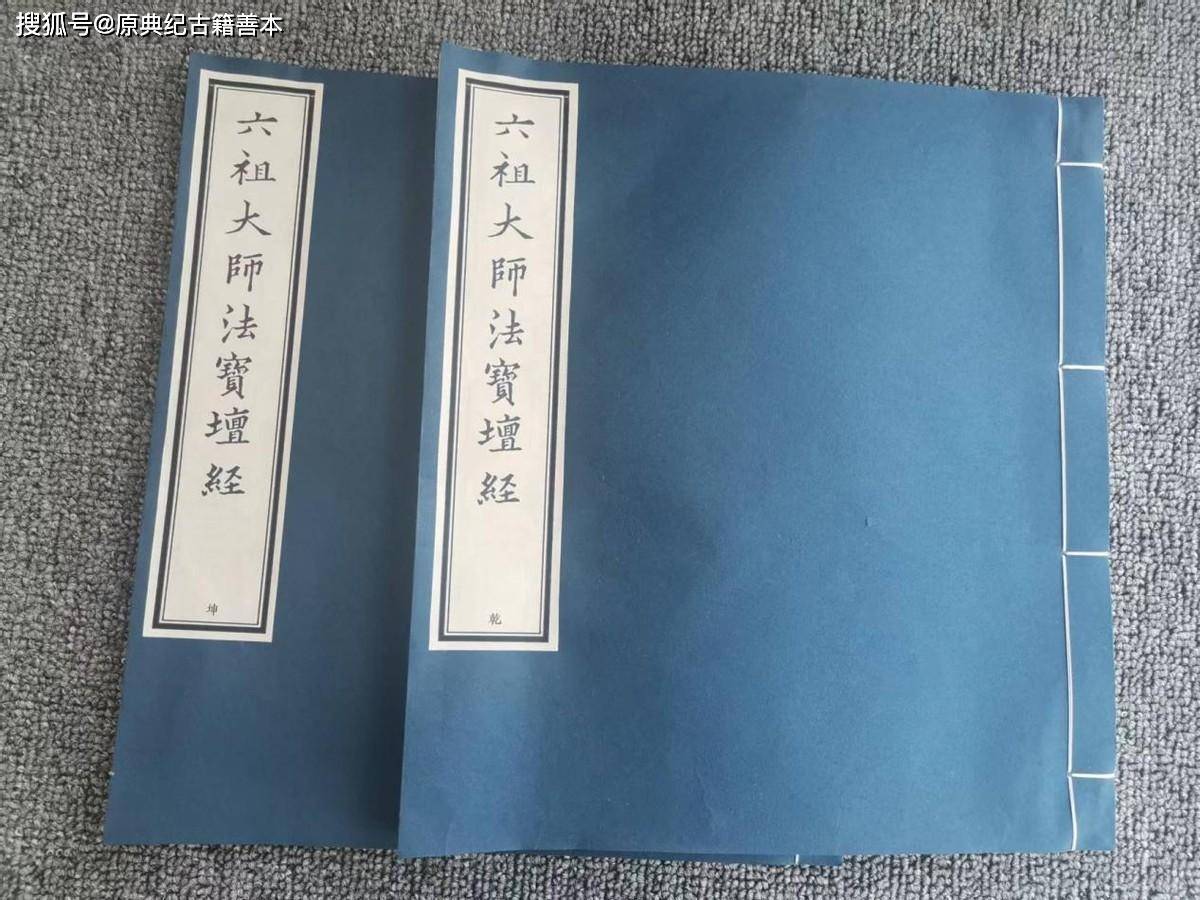 搜狐号@原典纪古籍善本
六祖大師法寳壇経
坤
六祖大師法寳壇経
乾